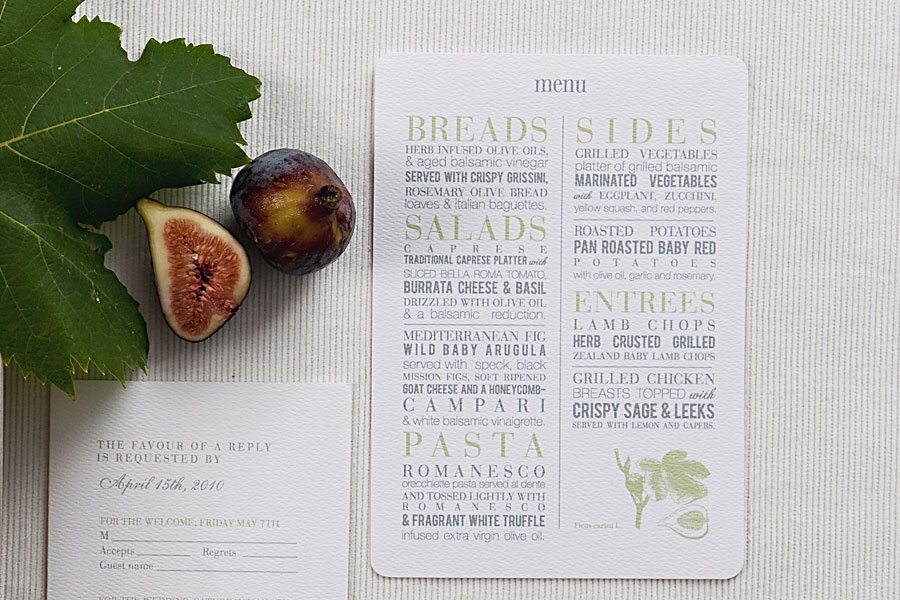 menu
BREADS
HERB INFUSED OLIVE OILS,
& aged balsamic vinegar
SERVED WITH CRISPY GRISSINI,
ROSEMARY OLIVE BREAD
loaves & italian baguettes.
SALADS
CAPRESE
TRADITIONAL CAPRESE PLATTER with
SLICED BELLA ROMA TOMATO,
BURRATA CHEESE & BASIL
DRIZZLED WITH OLIVE OIL
& a balsamic reduction.
MEDITERRANEAN FIG
WILD BABY ARUGULA
served with speck, black
MISSION FIGS, SOFT RIPENED
GOAT CHEESE AND A HONEYCOMB-
CAMPARI
& white balsamic vinaigrette.
PASTA
ROMANESCO
orecchiette pasta served al dente
AND TOSSED LIGHTLY WITH
ROMANESCO
& FRAGRANT WHITE TRUFFLE
infused extra virgin olive oil.
SIDES
GRILLED VEGETABLES
platter of grilled balsamic
MARINATED VEGETABLES
with EGGPLANT, ZUCCHINI,
yellow squash, and red peppers.
ROASTED POTATOES
PAN ROASTED BABY RED
POTATOES
with olive oil, garlic and rosemary.
ENTREES
LAMB CHOPS
HERB CRUSTED GRILLED
ZEALAND BABY LAMB CHOPS
GRILLED CHICKEN
BREASTS TOPPED with
CRISPY SAGE & LEEKS
SERVED WITH LEMON AND CAPERS.
Ficus carica L.
THE FAVOUR OF A REPLY
IS REQUESTED BY
April 15th, 2010
FOR THE WELCOME, FRIDAY MAY 7TH
M
Accepts Regrets
Guest name